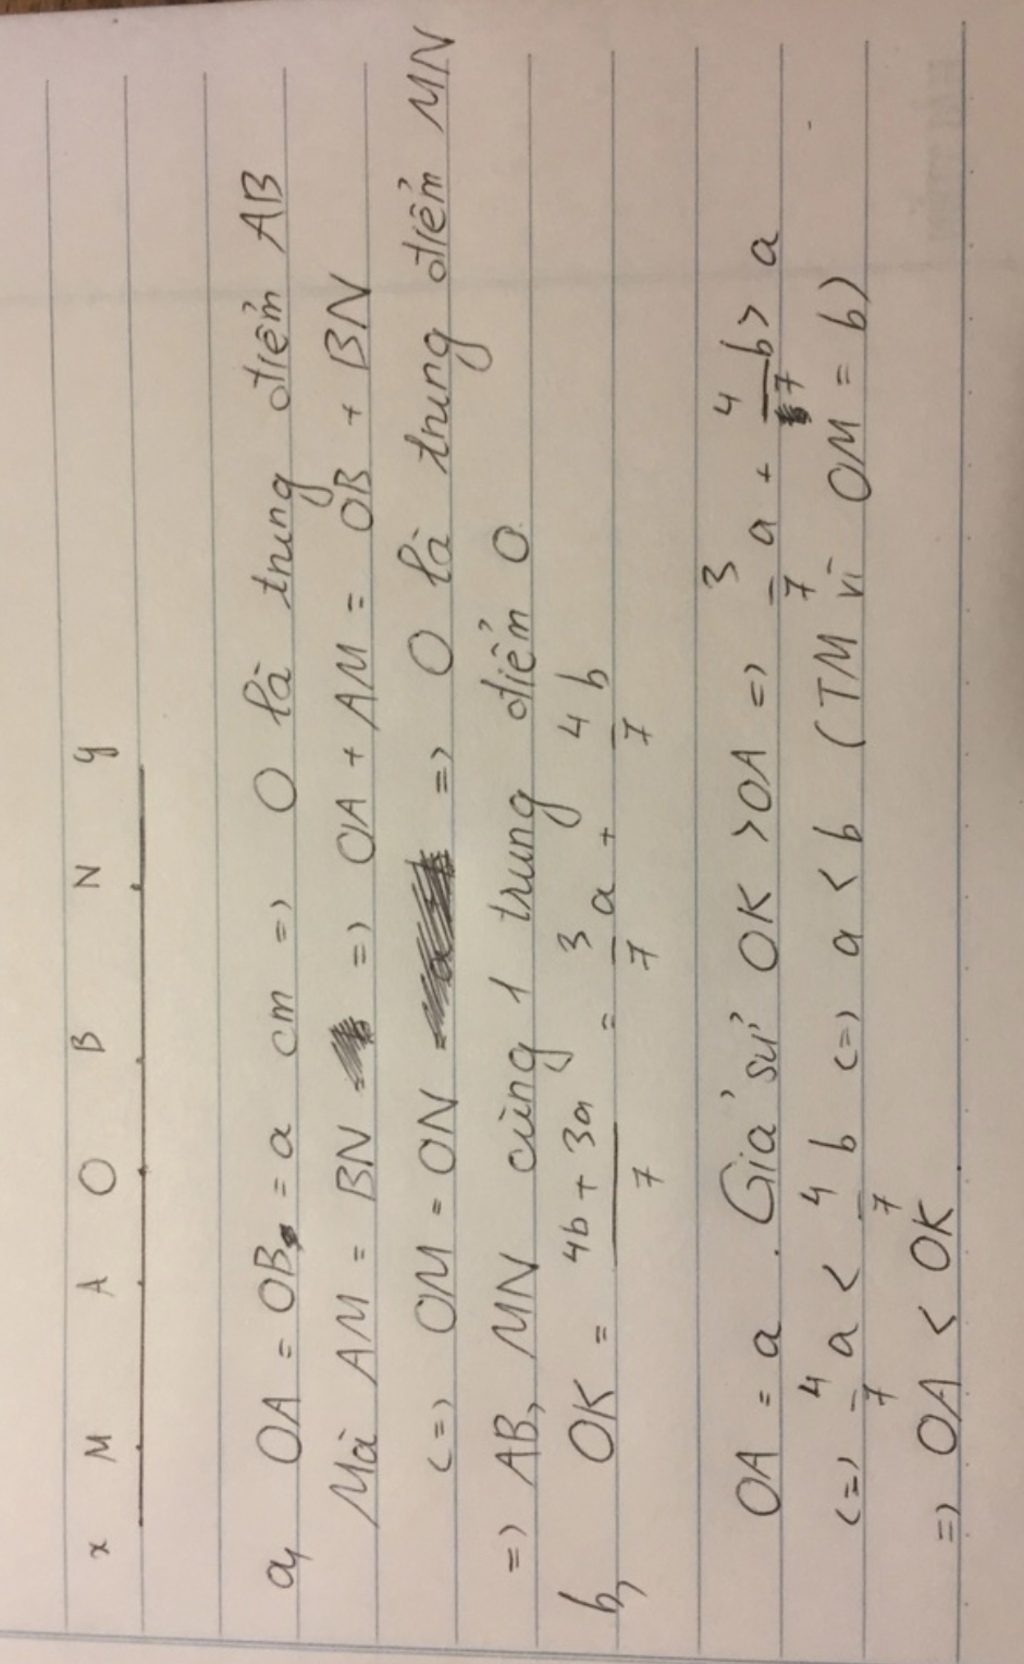 x M A O B N y
a, OA = OB = a cm => O là trung điểm AB
Mà AM = BN => OA + AM = OB + BN
<=> OM = ON => O là trung điểm MN
=> AB, MN cùng 1 trung điểm O
b, OK = \frac{4b + 3a}{7} = \frac{3}{7} a + \frac{4}{7} b
OA = a. Giả sử OK > OA => \frac{3}{7} a + \frac{4}{7} b > a
<=> \frac{4}{7} a < \frac{4}{7} b <=> a < b (TM vì OM = b)
=> OA < OK